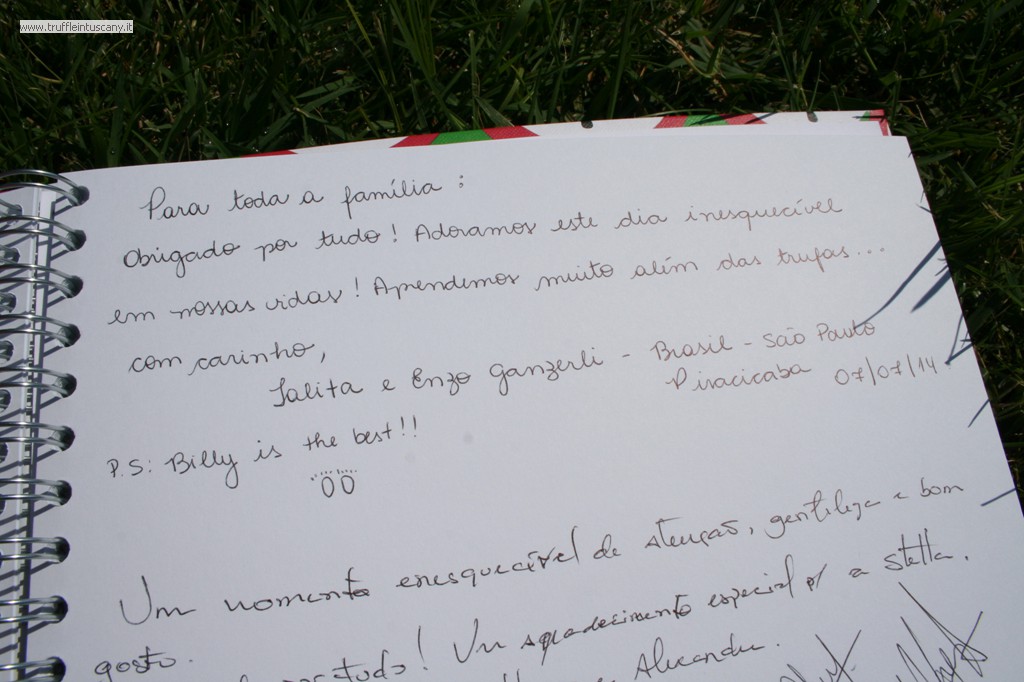 www.truffleintuscany.it
Para toda a família :
Obrigado por tudo! Adoramos este dia inesquecível
em nossas vidas! Aprendemos muito além das trufas...
com carinho,
Talita e Enzo Ganzerli - Brasil - São Paulo
Piracicaba 07/07/14
P.S: Billy is the best!!
Um momento enesquecível de atenção, gentileza e bom
gosto.
tudo! Um agradecimento especial p/ a Stella.